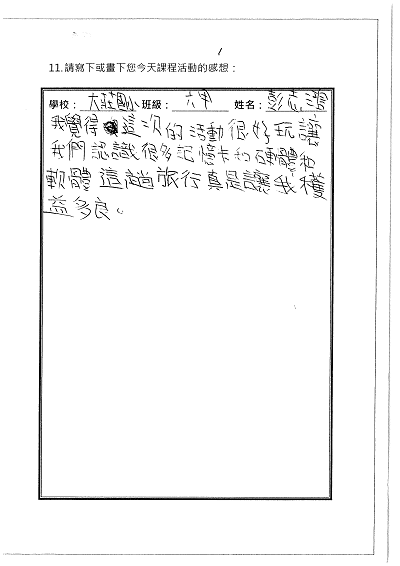 11.請寫下或畫下您今天課程活動的感想：
學校：大莊國小班級：六甲 姓名：彭志鴻
我覺得這次的活動很好玩讓
我們認識很多記憶卡和硬體和
軟體這趟旅行真是讓我穫
益多良。